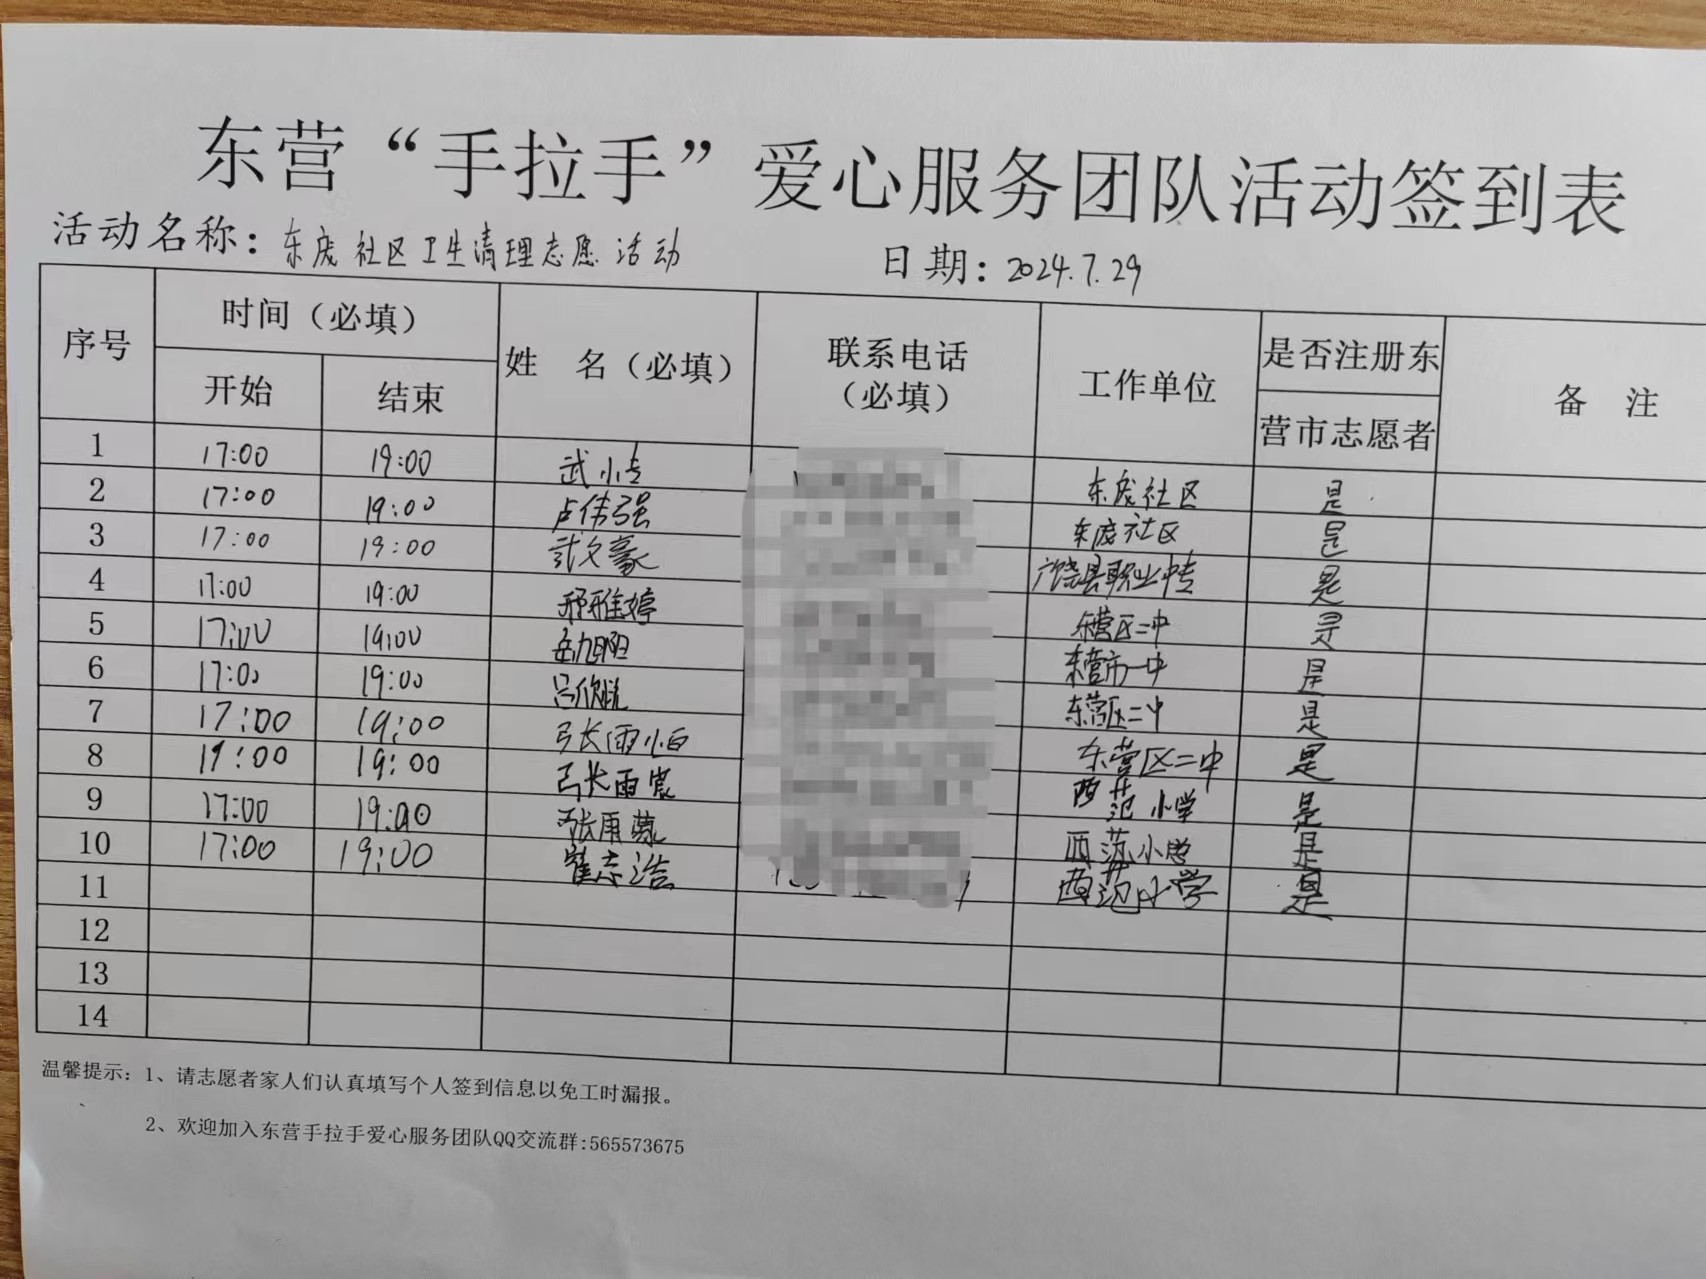 东营“手拉手”爱心服务团队活动签到表
活动名称：东庞社区卫生清理志愿活动 日期：2024.7.29
序号 时间（必填） 姓 名（必填） 联系电话（必填） 工作单位 是否注册东营市志愿者 备 注
开始 结束
1 17:00 19:00 武小 东庞社区 是
2 17:00 19:00 卢伟强 东庞社区 是
3 17:00 19:00 武文豪 广饶县职业中专 是
4 17:00 19:00 邢雅婷 东营区二中 是
5 17:00 19:00 岳旭阳 东营市一中 是
6 17:00 19:00 吕欣悦 东营区二中 是
7 17:00 19:00 张雨 东营区二中 是
8 17:00 19:00 张雨宸 西范小学 是
9 17:00 19:00 张雨蒙 西范小学 是
10 17:00 19:00 崔志浩 西范小学 是
11
12
13
14
温馨提示：1、请志愿者家人们认真填写个人签到信息以免工时漏报。
2、欢迎加入东营手拉手爱心服务团队QQ交流群:565573675